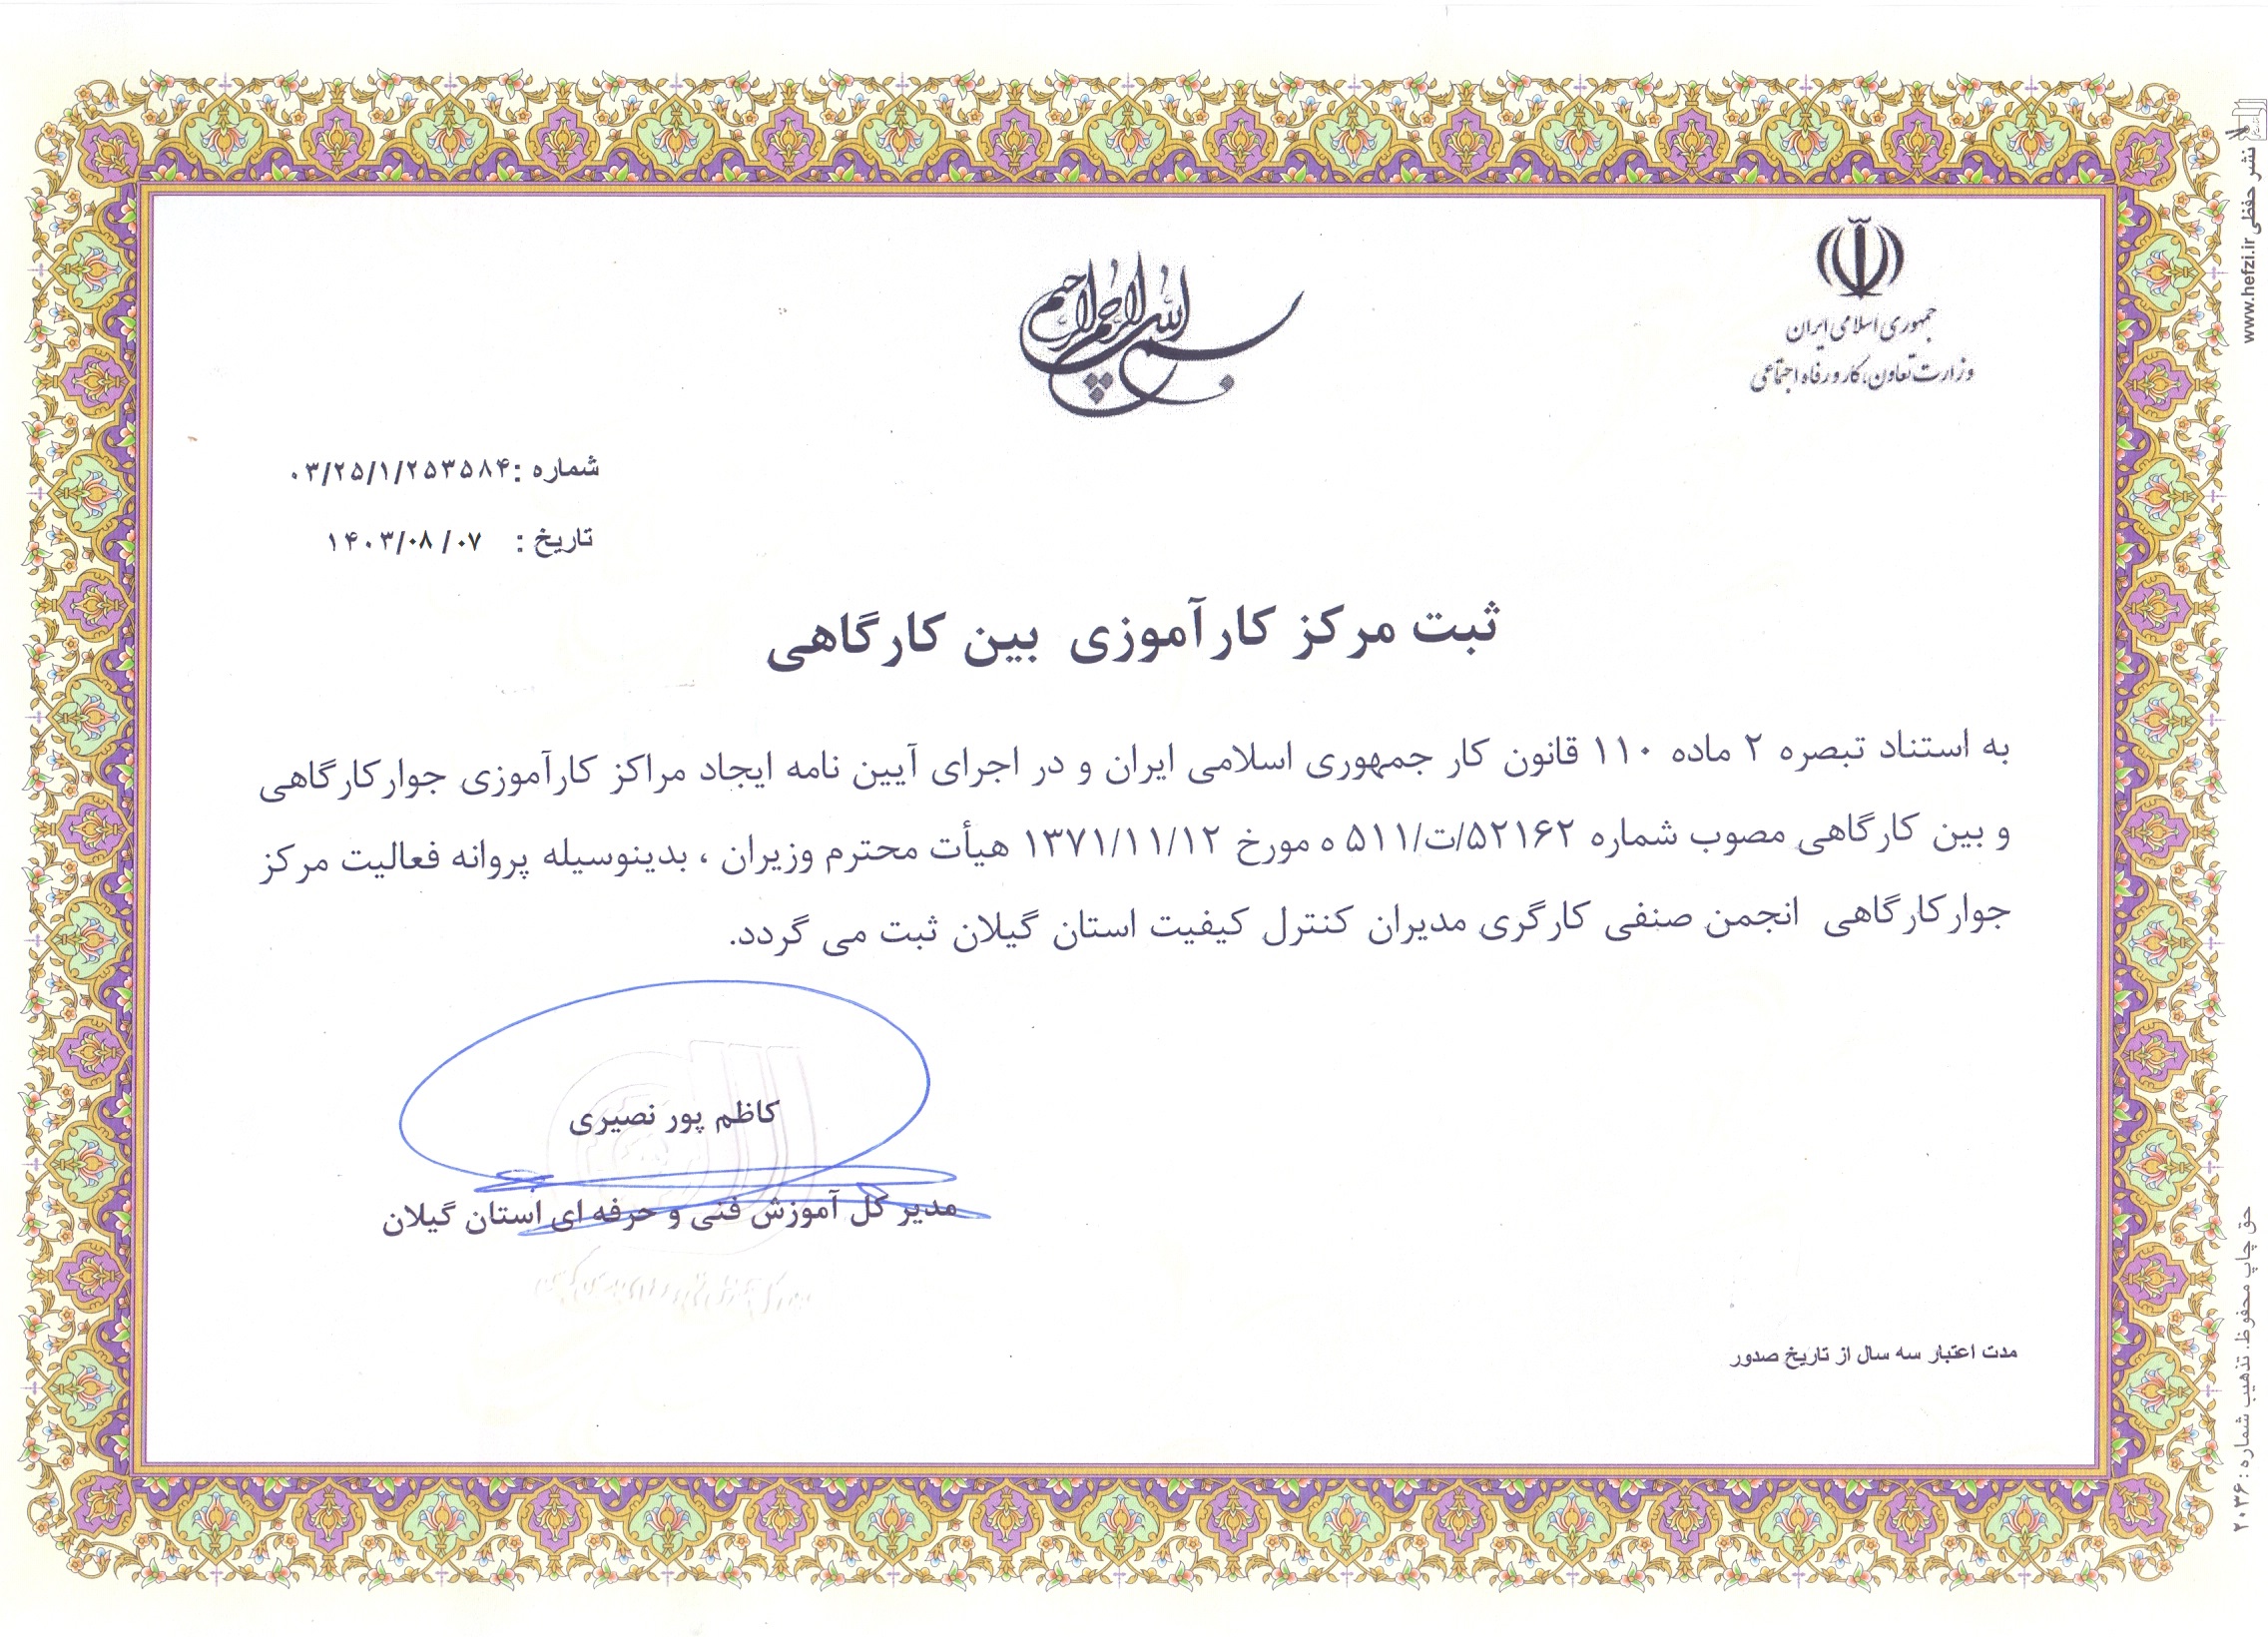 بسم الله الرحمن الرحیم
جمهوری اسلامی ایران
وزارت تعاون، کار و رفاه اجتماعی
شماره :۰۳/۲۵/۱/۲۵۳۵۸۴
تاریخ : ۱۴۰۳/۰۸/۰۷
ثبت مرکز کارآموزی بین کارگاهی
به استناد تبصره ۲ ماده ۱۱۰ قانون کار جمهوری اسلامی ایران و در اجرای آیین نامه ایجاد مراکز کارآموزی جوارکارگاهی
و بین کارگاهی مصوب شماره ۵۲۱۶۲/ت/۵۱۱ ه مورخ ۱۳۷۱/۱۱/۱۲ هیأت محترم وزیران ، بدینوسیله پروانه فعالیت مرکز
جوارکارگاهی انجمن صنفی کارگری مدیران کنترل کیفیت استان گیلان ثبت می گردد.
کاظم پور نصیری
مدیر کل آموزش فنی و حرفه ای استان گیلان
مدت اعتبار سه سال از تاریخ صدور
نشر حفظی www.hefzi.ir
حق چاپ محفوظ. تذهیب شماره : ۲۰۳۶